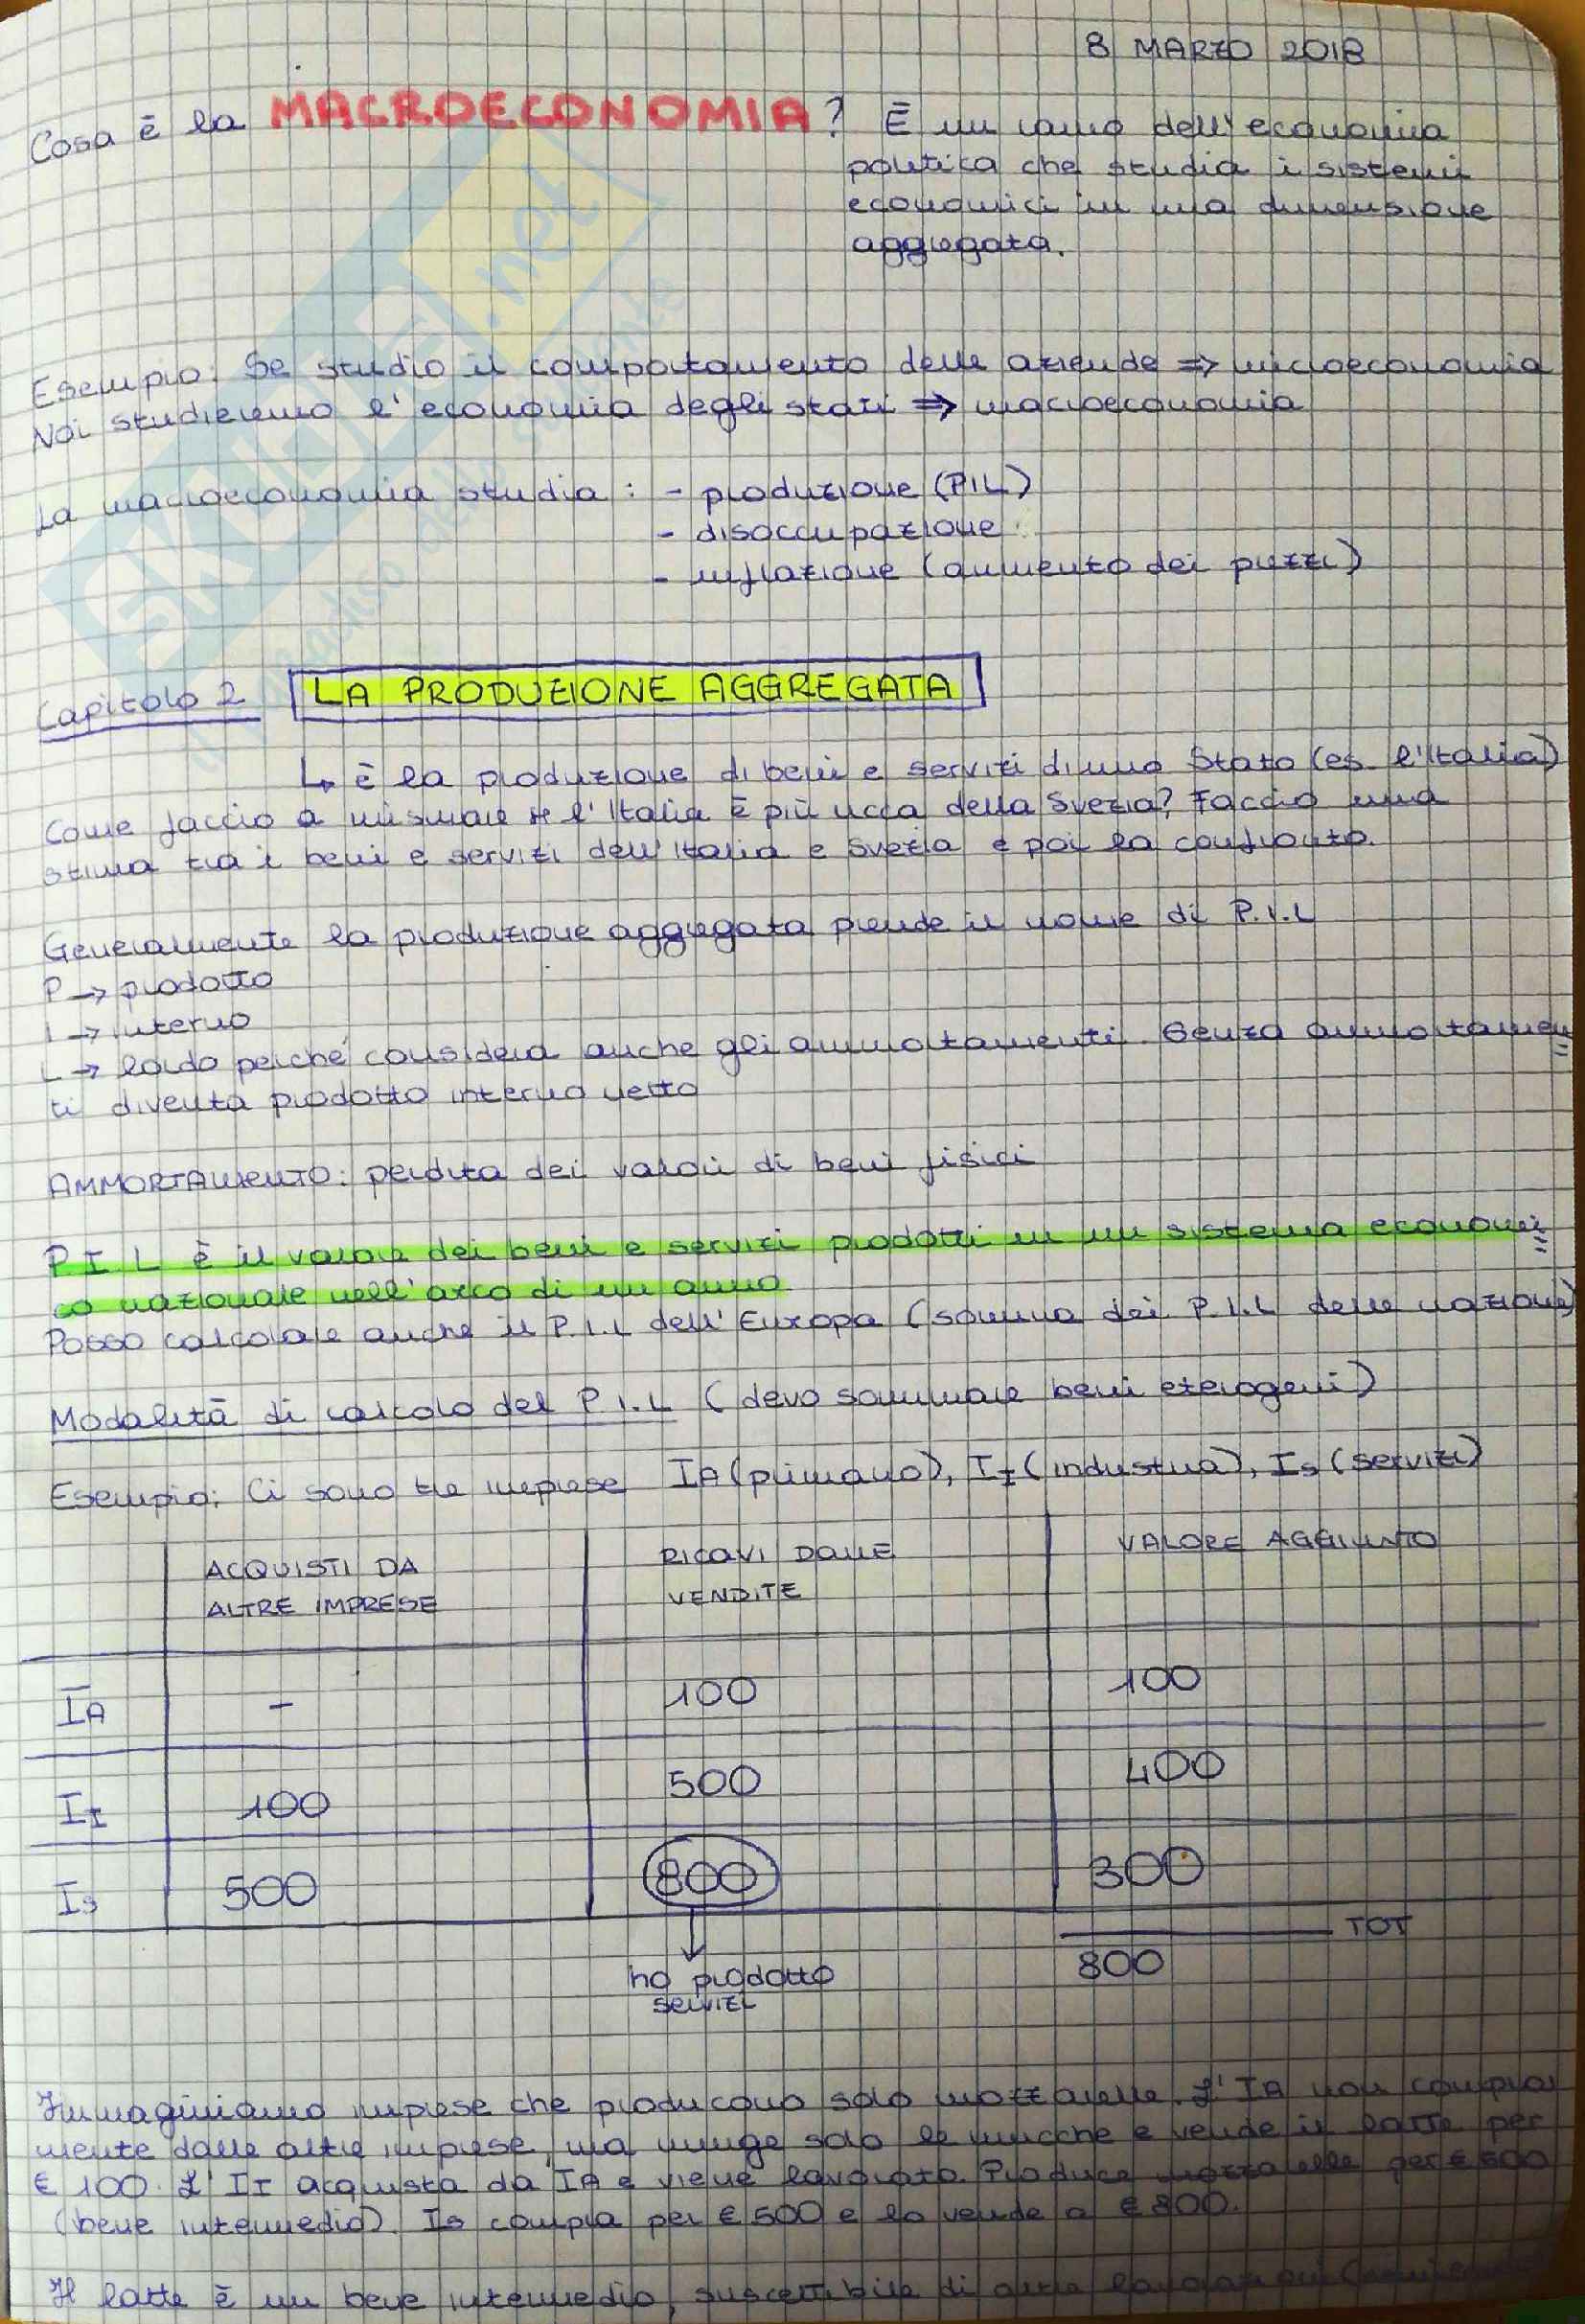 8 MARZO 2018
Cosa è la MACROECONOMIA? È un ramo dell'economia
politica che studia i sistemi
economici in una dimensione
aggregata.
Esempio: Se studio il comportamento delle aziende ⇒ microeconomia
Noi studieremo l'economia degli stati ⇒ macroeconomia
La macroeconomia studia: - produzione (PIL)
- disoccupazione
- inflazione (aumento dei prezzi)
Capitolo 2 LA PRODUZIONE AGGREGATA
↳ è la produzione di beni e servizi di uno Stato (es. l'Italia)
Come faccio a misurare se l'Italia è più ricca della Svezia? Faccio una
stima tra i beni e servizi dell'Italia e Svezia e poi la confronto.
Generalmente la produzione aggregata prende il nome di P.I.L
P → prodotto
I → interno
L → lordo perché considera anche gli ammortamenti. Senza ammortamen=
ti diventa prodotto interno netto
AMMORTAMENTO: perdita dei valori di beni fisici
P.I.L è il valore dei beni e servizi prodotti in un sistema economi=
co nazionale nell'arco di un anno
Posso calcolare anche il P.I.L dell'Europa (somma dei P.I.L delle nazioni)
Modalità di calcolo del P.I.L (devo sommare beni eterogeni)
Esempio: Ci sono tre imprese IA (primario), II (industria), Is (servizi)
ACQUISTI DA ALTRE IMPRESE RICAVI DALLE VENDITE VALORE AGGIUNTO
IA - 100 100
II 100 500 400
Is 500 800 300
TOT
ho prodotto servizi 800
Immaginiamo imprese che producono solo mozzarelle. L'IA non compra
niente dalle altre imprese, ma munge solo le mucche e vende il latte per
€ 100. L'II acquista da IA e viene lavorato. Produce mozzarelle per € 500
(bene intermedio). Is compra per € 500 e lo vende a € 800.
Il latte è un bene intermedio, suscettibile di altre lavorazioni
SKUOLA.net
il paradiso dello studente